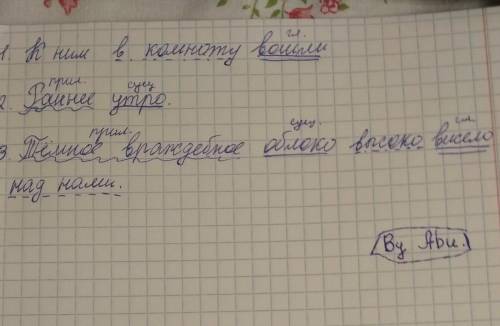 гл.
1. К ним в комнату вошли
прил. сущ.
2. Раннее утро.
прил. сущ. гл.
3. Тёмное враждебное облоко высоко висело
над нами.
By Abu.